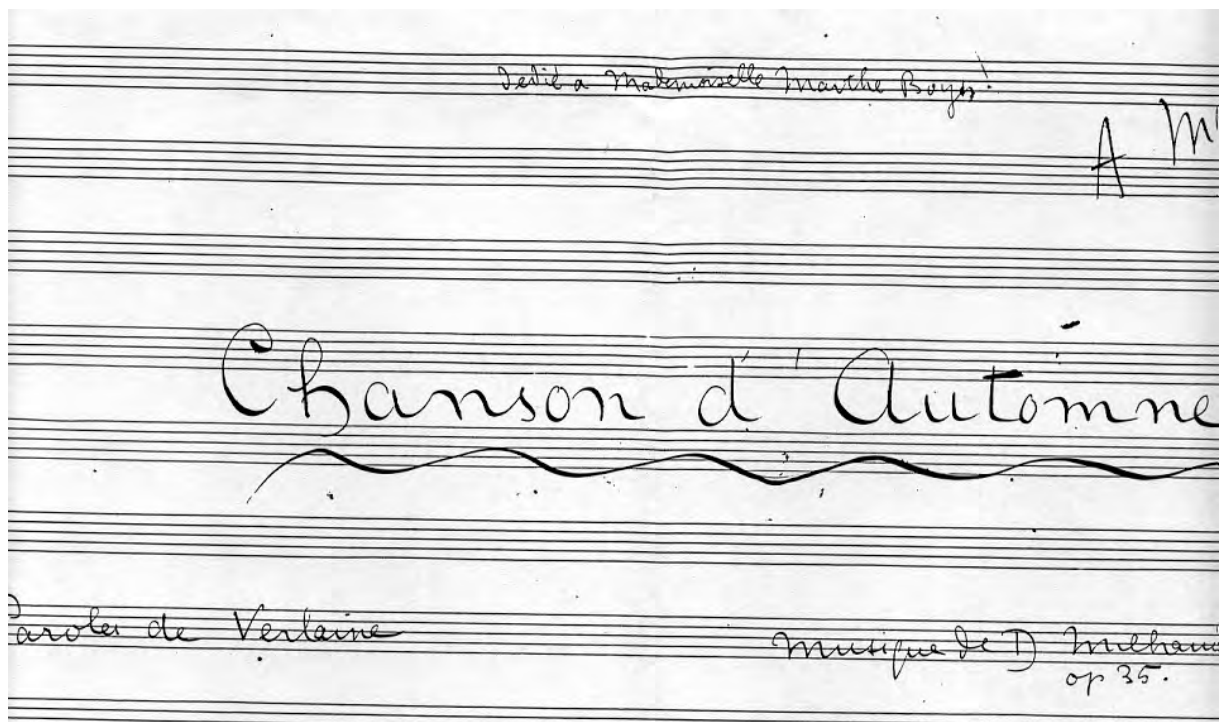 Dedié a Mademoiselle Marthe
A M
Chanson d'Automne
Paroles de Verlaine
Musique de D Milhau
op 35.